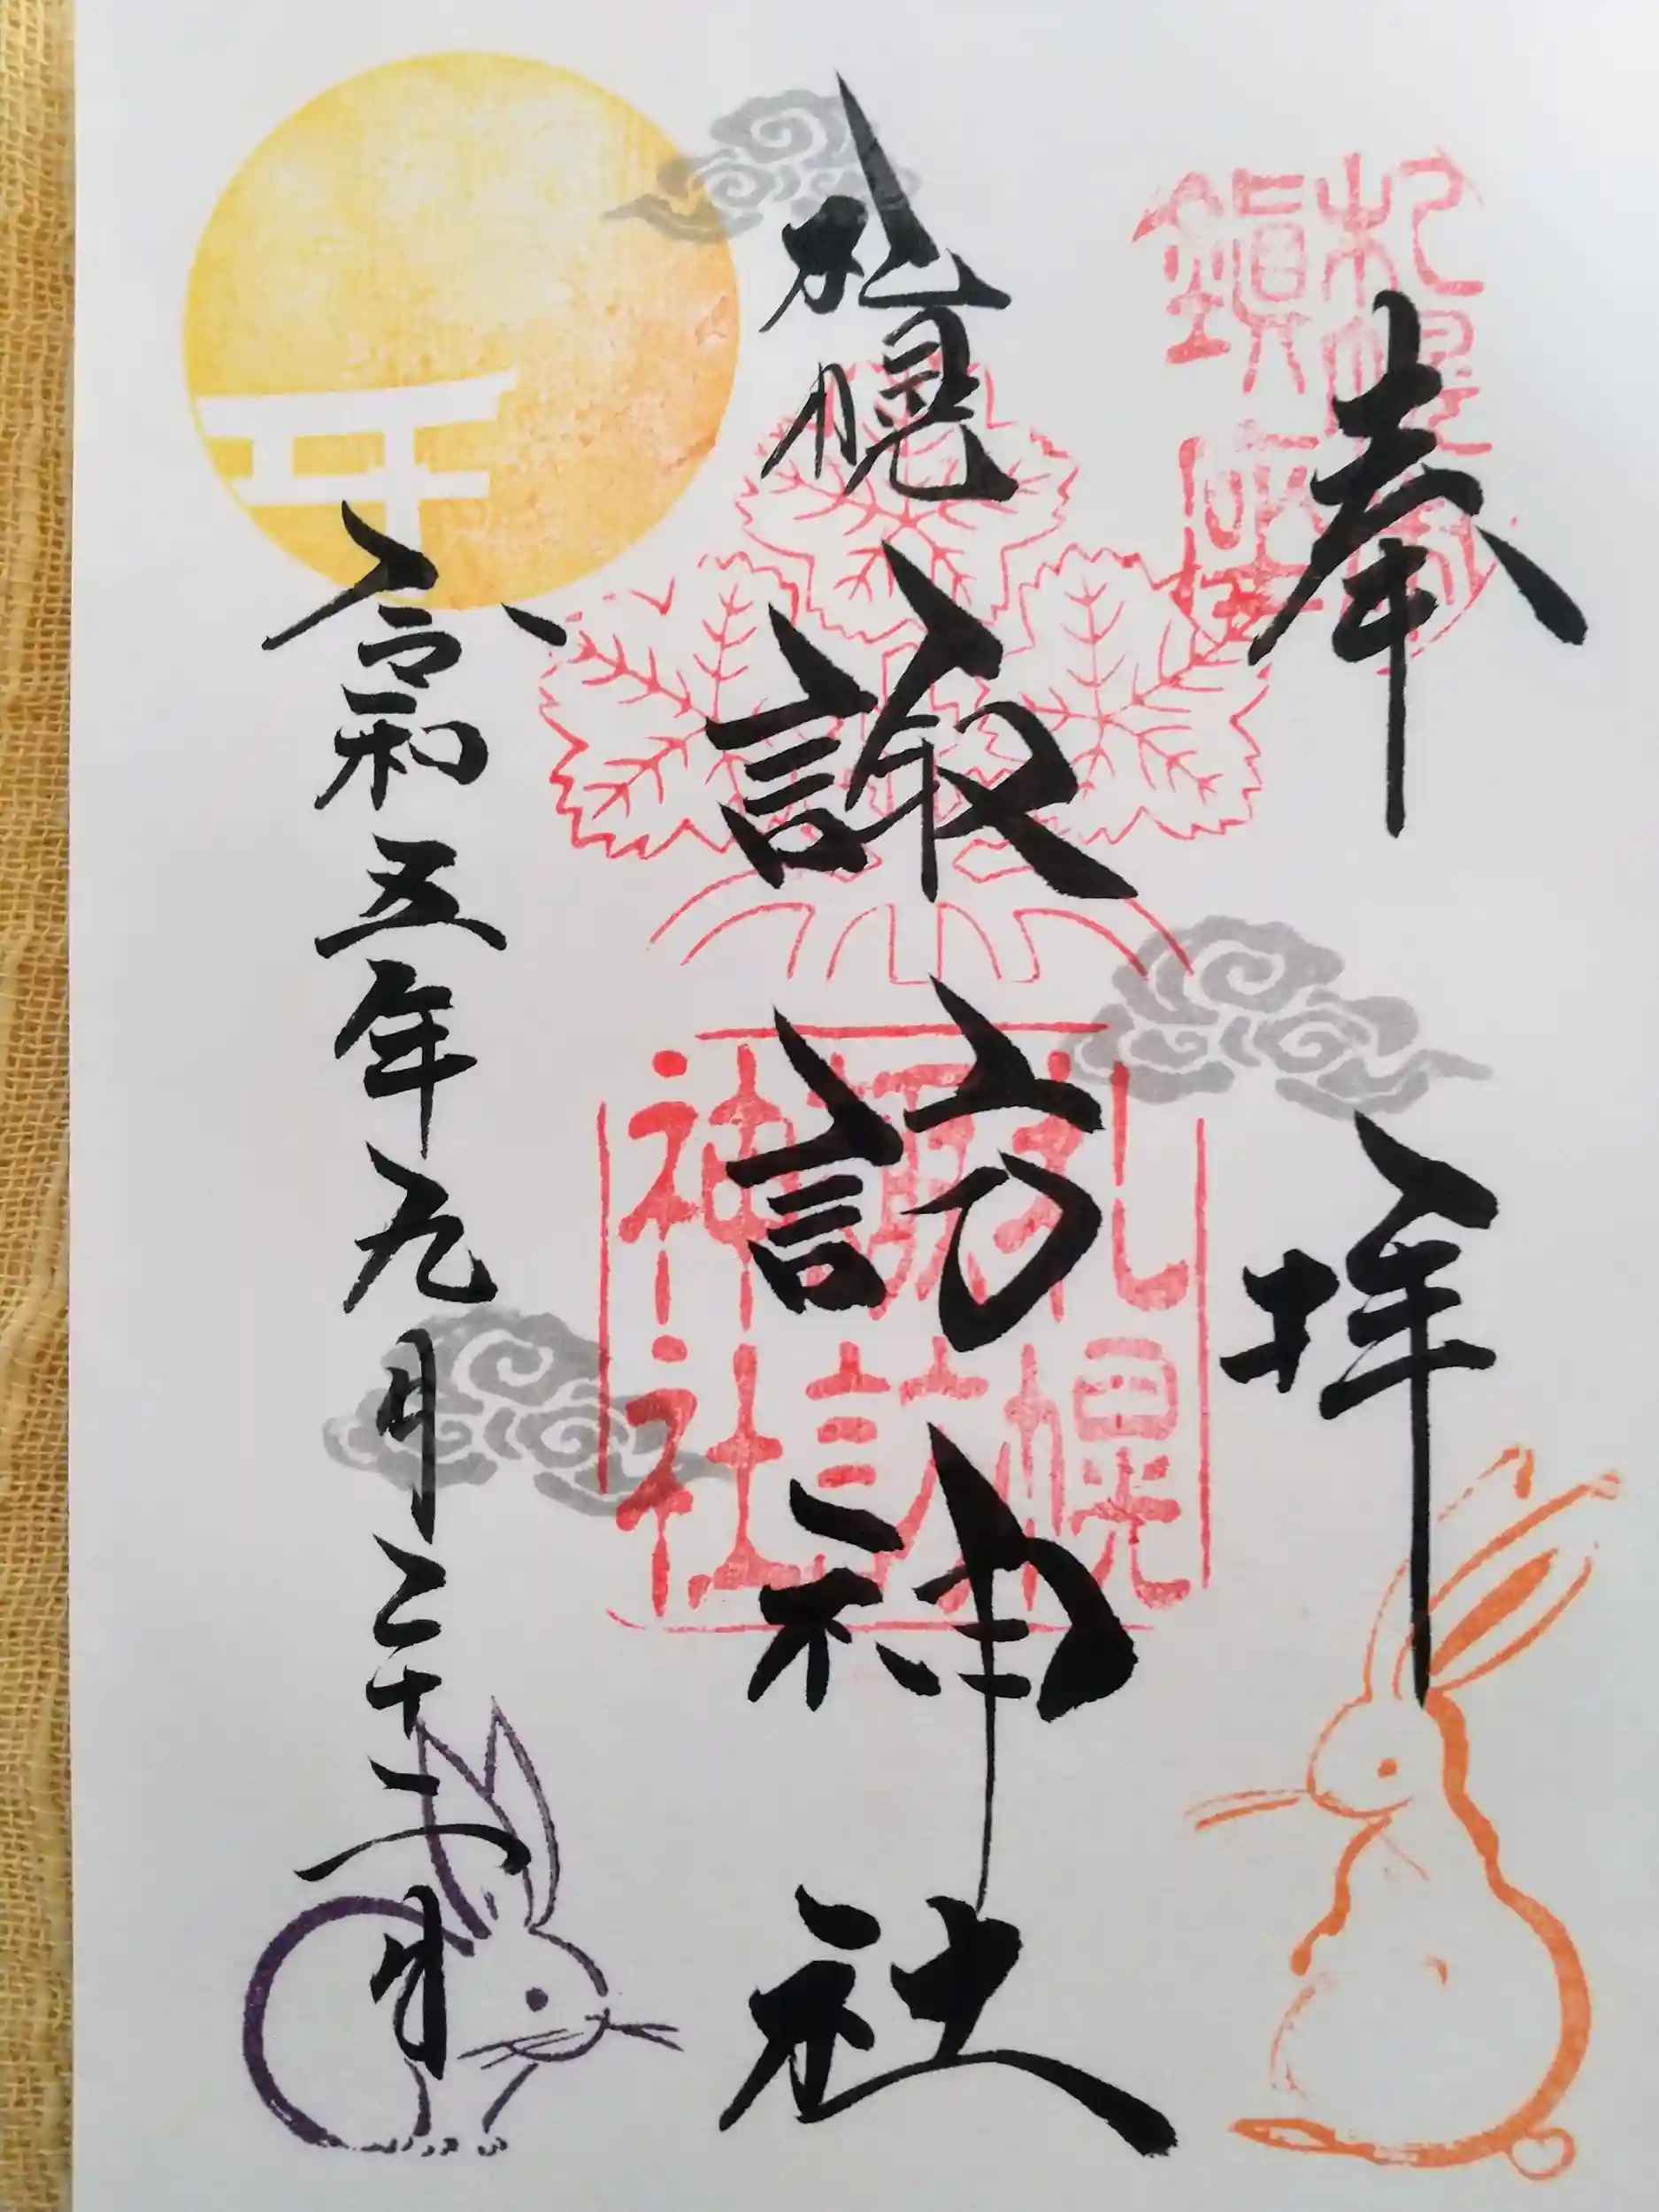 札幌
鎮座
奉拝
札幌
諏訪神社
札幌
諏訪
神社
令和五年九月二十二日